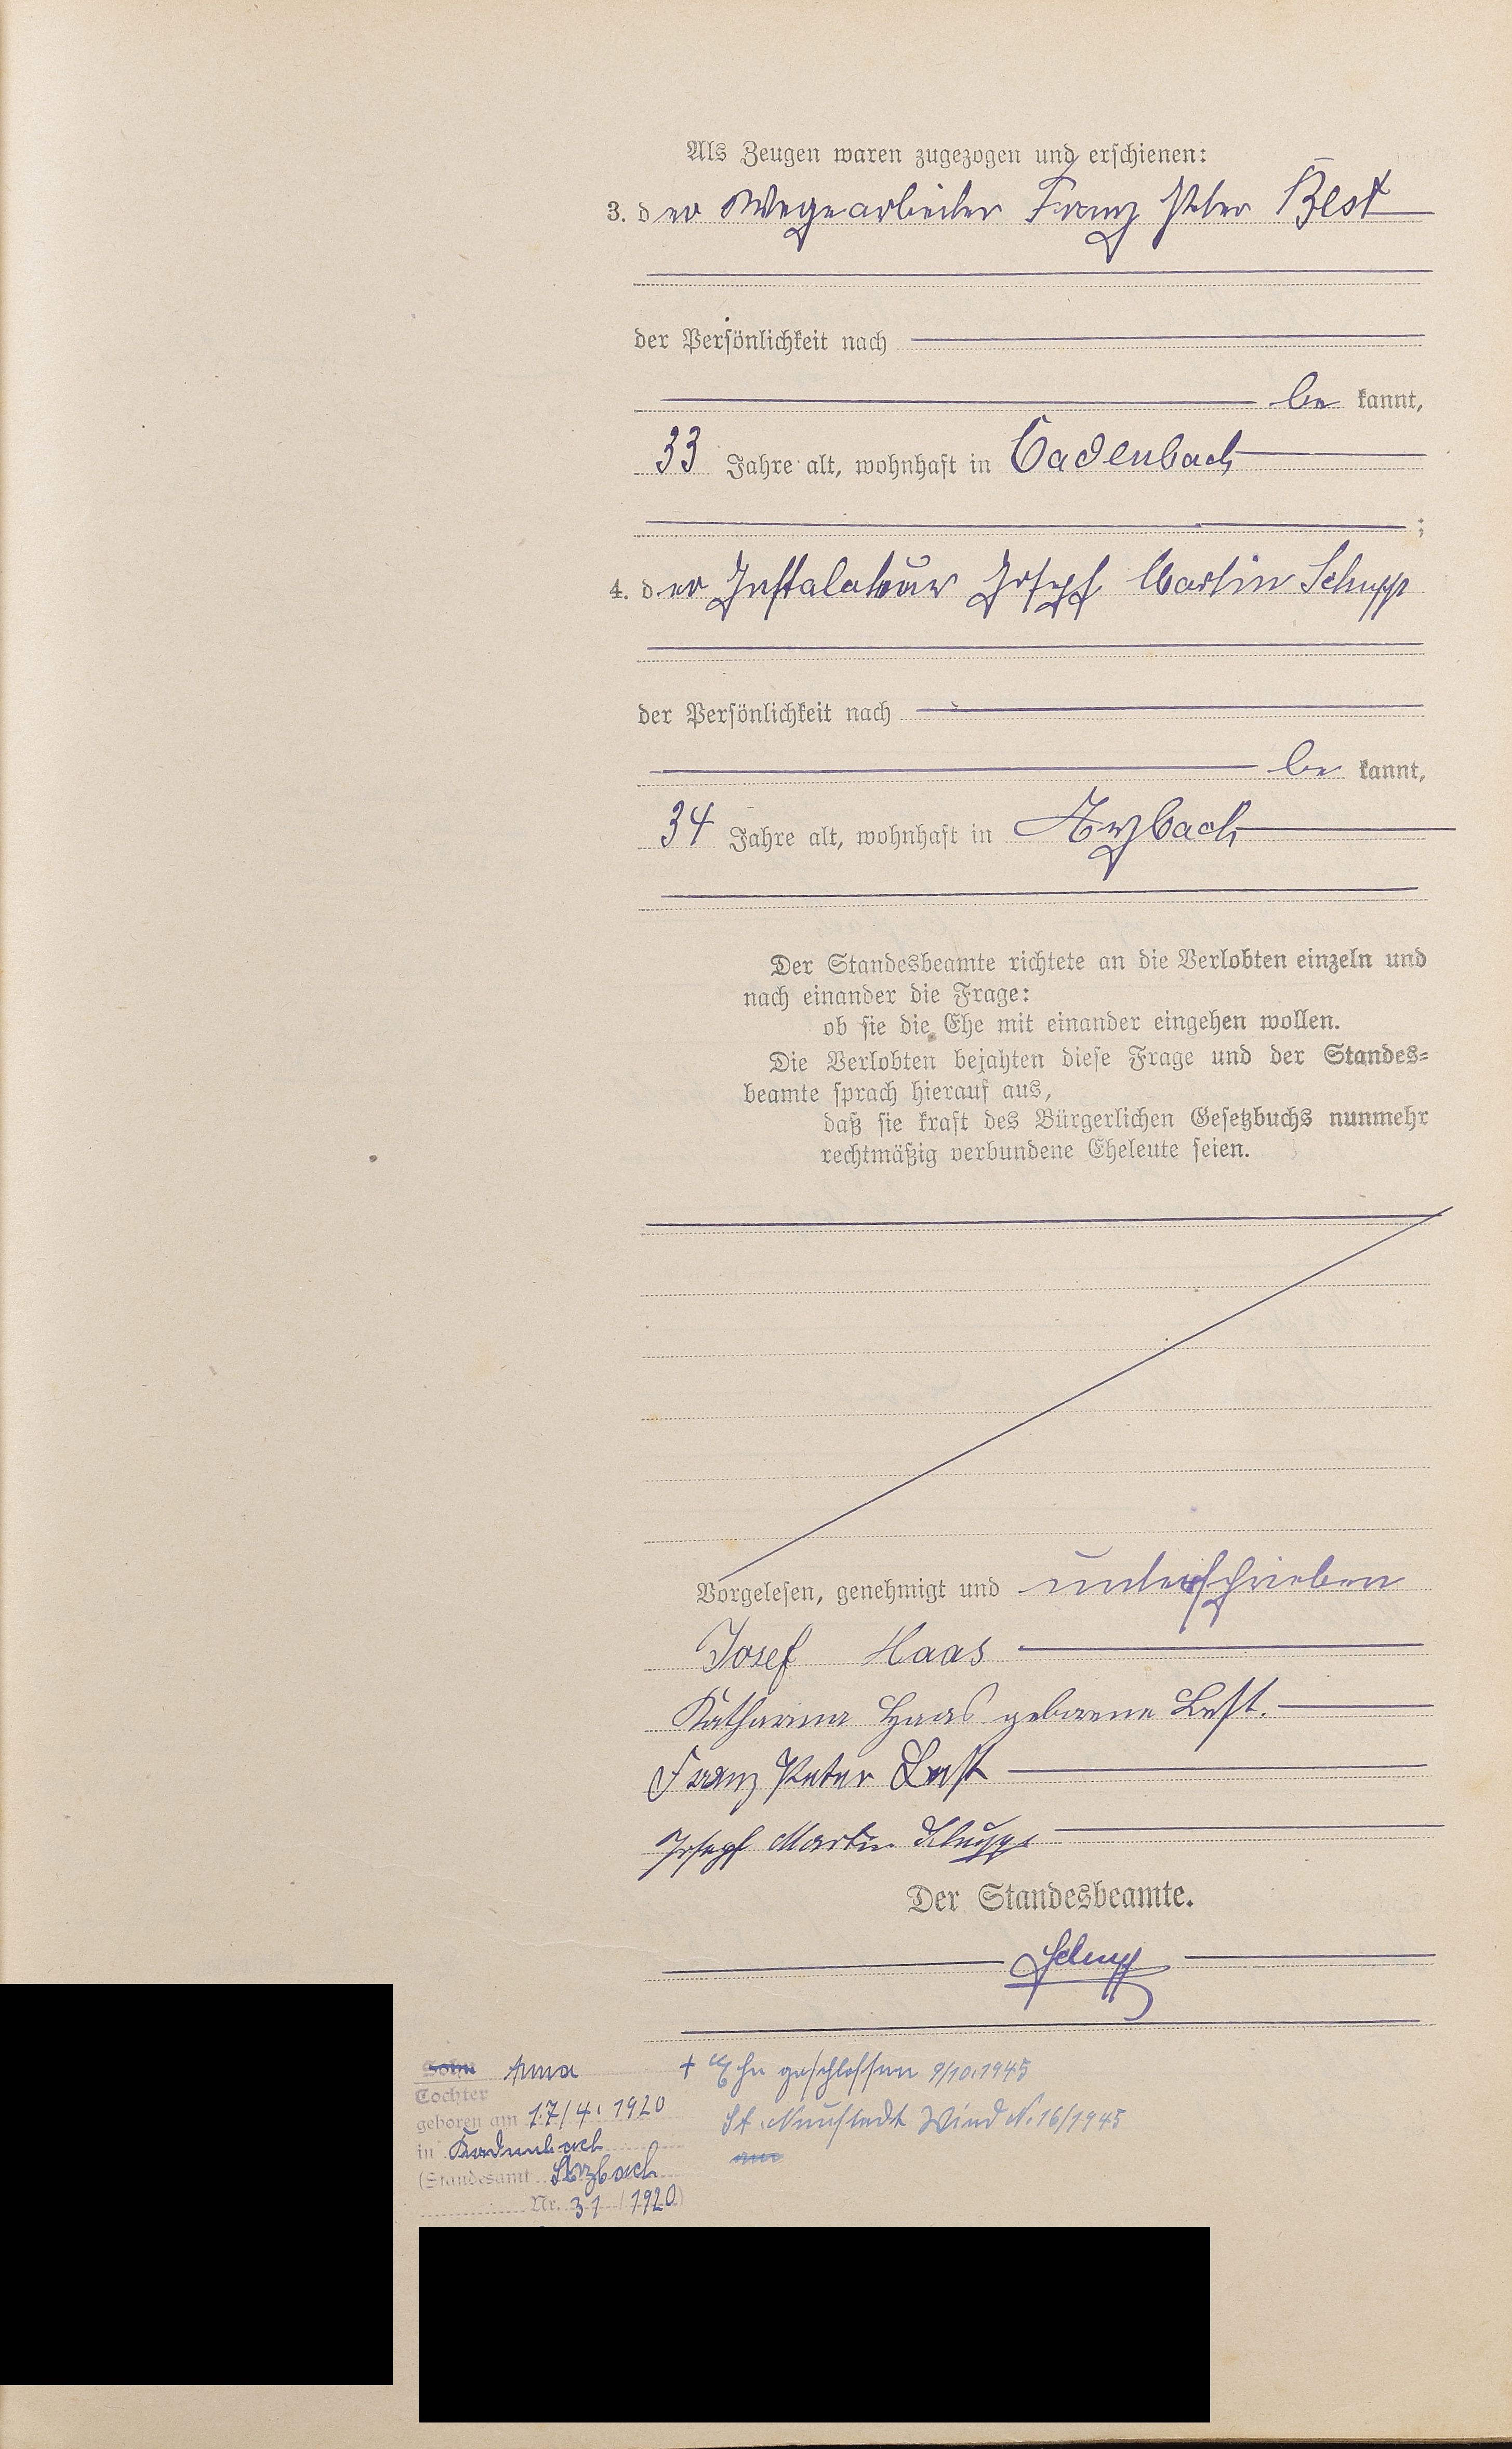 Als Zeugen waren zugezogen und erschienen:
3. der Wegearbeiter Franz Peter Best
der Persönlichkeit nach
be kannt,
33 Jahre alt, wohnhaft in Cadenbach
;
4. der Instalateur Joseph Martin Schupp
der Persönlichkeit nach
be kannt,
34 Jahre alt, wohnhaft in Arzbach
Der Standesbeamte richtete an die Verlobten einzeln und
nach einander die Frage:
ob sie die Ehe mit einander eingehen wollen.
Die Verlobten bejahten diese Frage und der Standes-
beamte sprach hierauf aus,
daß sie kraft des Bürgerlichen Gesetzbuchs nunmehr
rechtmäßig verbundene Eheleute seien.
Vorgelesen, genehmigt und unterschrieben
Josef Haas
Katharina Haas geborene Best.
Franz Peter Best
Joseph Martin Schupp
Der Standesbeamte.
Schupp
Sohn Anna
Tochter
geboren am 17/4. 1920
in Kadenbach
(Standesamt Arzbach
Nr. 31/1920)
+ Ehe geschlossen 9/10.1945
St. Neustadt Wied N. 16/1945